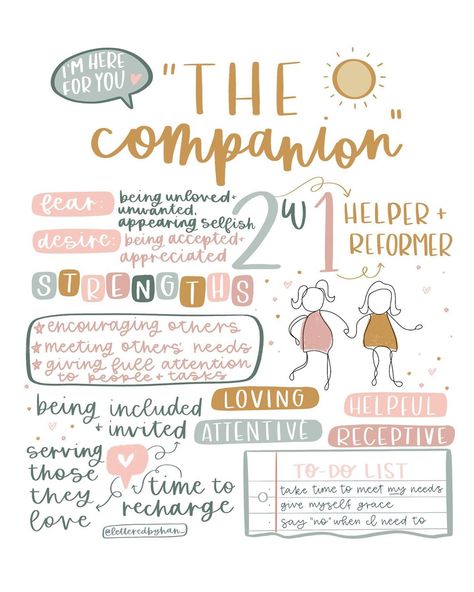 I'M HERE
FOR YOU
"THE
companion"
fear:
being unloved +
unwanted,
appearing selfish
desire:
being accepted +
appreciated
2w1
HELPER +
REFORMER
STRENGTHS
encouraging others
meeting others' needs
giving full attention
to people + tasks
LOVING
HELPFUL
ATTENTIVE
RECEPTIVE
being included
+ invited
serving
those
they
love
time to
recharge
@letteredbyhan_
TO-DO LIST
take time to meet my needs
give myself grace
say "no" when I need to